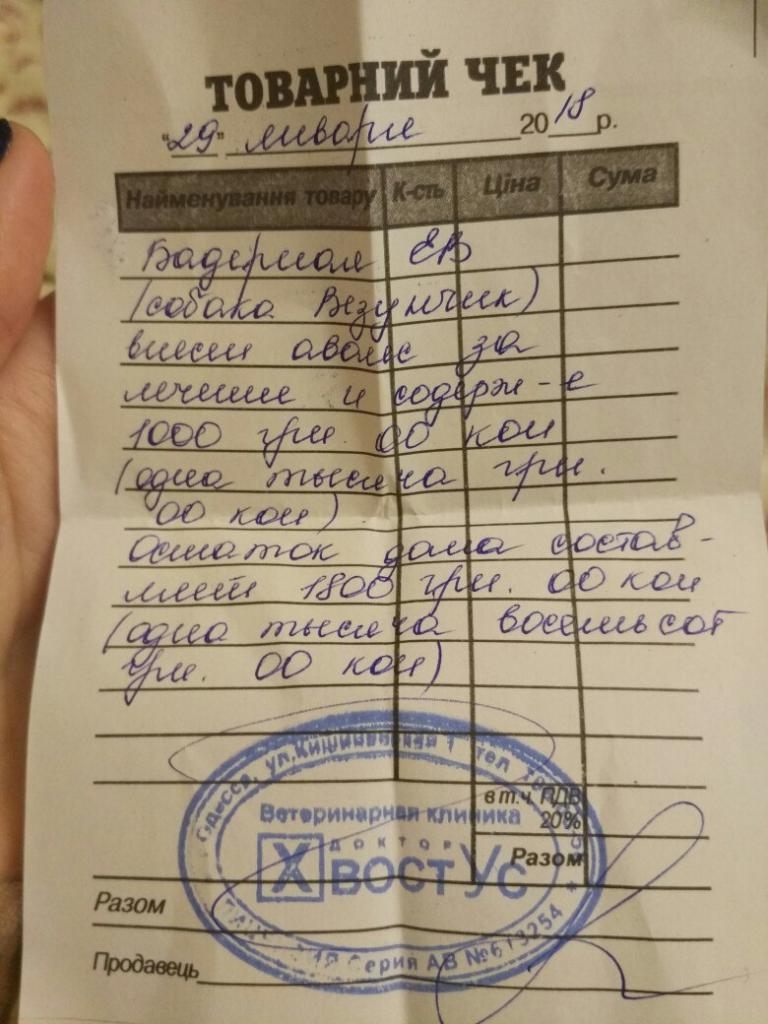 ТОВАРНИЙ ЧЕК
"29" января 2018 р.
Найменування товару К-сть Ціна Сума
Бадериал ЕВ
(собака Везунчик)
внесли аванс за
лечение и содерж-е
1000 грн. 00 коп
(одна тысяча грн.
00 коп)
Остаток долга состав-
ляет 1800 грн. 00 коп
(одна тысяча восемьсот
грн. 00 коп)
в т.ч. ПДВ
20%
Разом
Одесса, ул. Кишиневская 1 тел
Ветеринарная клиника
ДОКТОР
ХВОСТУС
Серия АВ №613254
Разом
Продавець